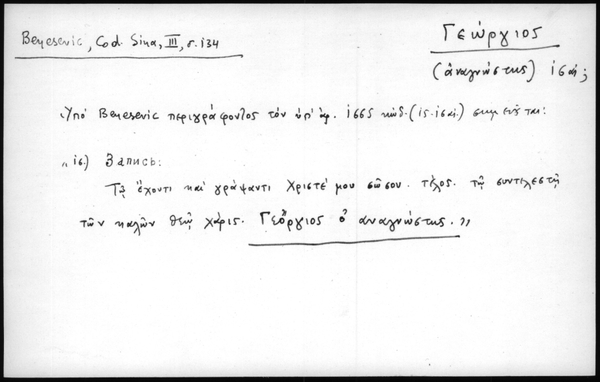 Benesevic, Cod. Sina, III, σ. 134
Γεώργιος
(ἀναγνώστης) ις αἰ;
Ὑπὸ Benesevic περιγράφοντος τὸν ὑπ' ἀρ. 1665 κώδ. (ις αἰ.) σημειοῦται:
Запись:
Τῷ ἔχοντι καὶ γράψαντι Χριστέ μου σῶσον. τέλος. τῷ συντελεστῇ
τῶν καλῶν θεῷ χάρις. Γεόργιος ὁ αναγνώστης."